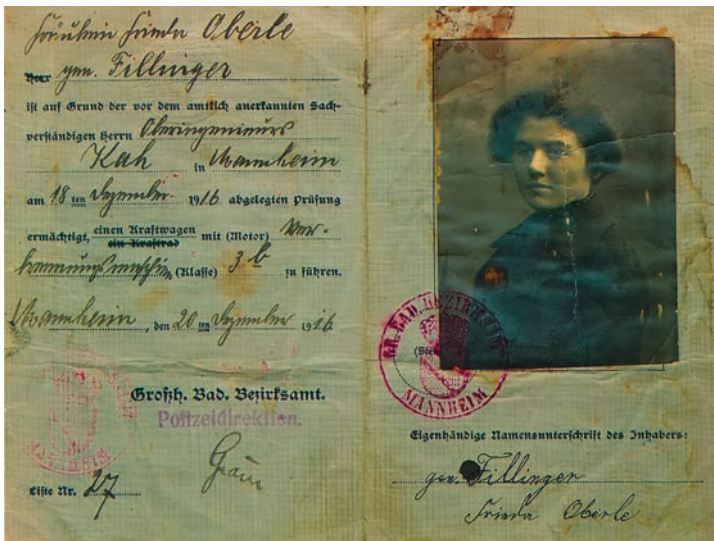 Fräulein Frieda Oberle
Herr gen. Fillinger
ist auf Grund der vor dem amtlich anerkannten Sach-
verständigen Herrn Oberingenieurs
Kah in Mannheim
am 18 ten Dezember 1916 abgelegten Prüfung
ermächtigt, einen Kraftwagen mit (Motor) Ver-
ein Kraftrad
brennungsmaschine (Klasse) 3b zu führen.
Mannheim, den 20 ten Dezember 1916
Großh. Bad. Bezirksamt.
Polizeidirektion.
Liste Nr. 27
GR. BAD. BEZIRKSAMT
MANNHEIM
Eigenhändige Namensunterschrift des Inhabers:
gen. Fillinger
Frieda Oberle